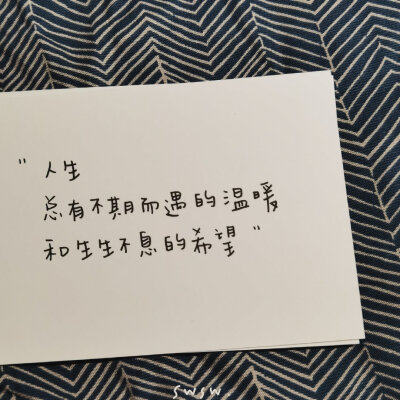 "人生
总有不期而遇的温暖
和生生不息的希望"
swsw